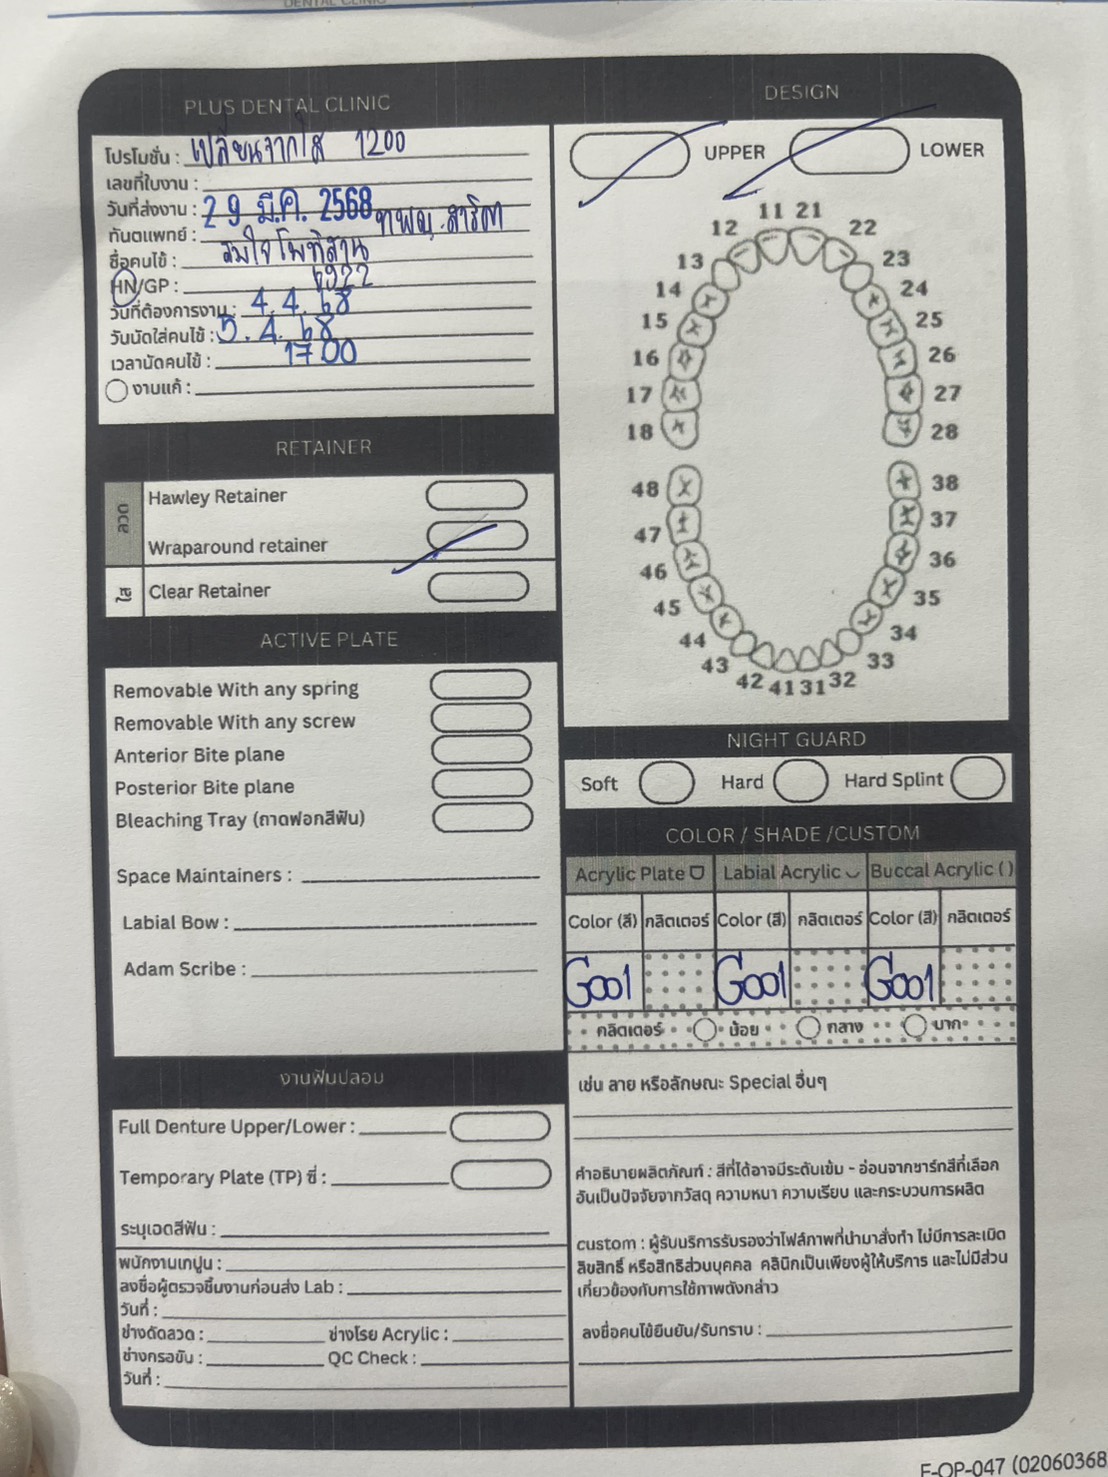 DENTAL CLINIC
PLUS DENTAL CLINIC
โปรโมชั่น : เปลี่ยนจากใส 1200
เลขที่ใบงาน :
วันที่ส่งงาน : 29 มี.ค. 2568
ทันตแพทย์ : ทพญ. สาริศา
ชื่อคนไข้ : สมใจ โพทิสาน
HN/GP : 6922
วันที่ต้องการงาน : 4. 4. 68
วันนัดใส่คนไข้ : 5. 4. 68
เวลานัดคนไข้ : 17 00
งานแก้ :
RETAINER
ลวด
Hawley Retainer
Wraparound retainer
ใส
Clear Retainer
ACTIVE PLATE
Removable With any spring
Removable With any screw
Anterior Bite plane
Posterior Bite plane
Bleaching Tray (ถาดฟอกสีฟัน)
Space Maintainers :
Labial Bow :
Adam Scribe :
งานฟันปลอม
Full Denture Upper/Lower :
Temporary Plate (TP) ซี่ :
ระบุเฉดสีฟัน :
พนักงานเทปูน :
ลงชื่อผู้ตรวจชิ้นงานก่อนส่ง Lab :
วันที่ :
ช่างดัดลวด : ช่างโรย Acrylic :
ช่างกรอขัน : QC Check :
วันที่ :
DESIGN
UPPER LOWER
11 21
12 22
13 23
14 24
15 25
16 26
17 27
18 28
48 38
47 37
46 36
45 35
44 34
43 33
42 41 31 32
NIGHT GUARD
Soft Hard Hard Splint
COLOR / SHADE /CUSTOM
Acrylic Plate Labial Acrylic Buccal Acrylic ( )
Color (สี) กลิตเตอร์ Color (สี) กลิตเตอร์ Color (สี) กลิตเตอร์
G001 G001 G001
กลิตเตอร์ น้อย กลาง มาก
เช่น ลาย หรือลักษณะ Special อื่นๆ
คำอธิบายผลิตภัณฑ์ : สีที่ได้อาจมีระดับเข้ม - อ่อนจากชาร์ทสีที่เลือก
อันเป็นปัจจัยจากวัสดุ ความหนา ความเรียบ และกระบวนการผลิต
custom : ผู้รับบริการรับรองว่าไฟล์ภาพที่นำมาสั่งทำ ไม่มีการละเมิด
ลิขสิทธิ์ หรือสิทธิส่วนบุคคล คลินิกเป็นเพียงผู้ให้บริการ และไม่มีส่วน
เกี่ยวข้องกับการใช้ภาพดังกล่าว
ลงชื่อคนไข้ยืนยัน/รับทราบ :
F-OP-047 (02060368